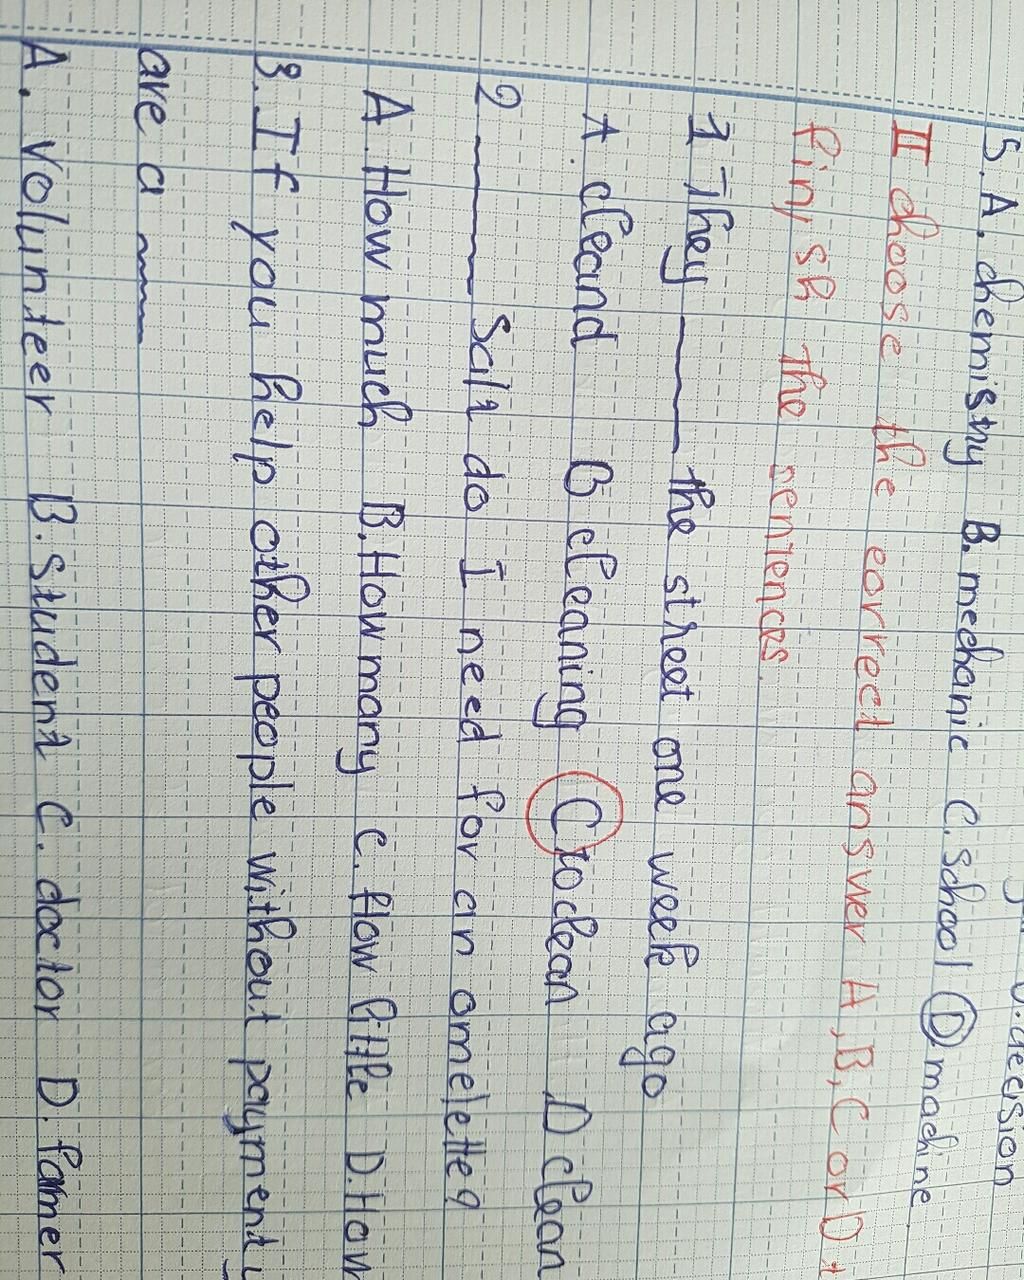 D. decision
5. A. chemistry B. mechanic C. school D machine
II choose the correct answer A, B, C or D t
finish the sentences
1 They ______ the street one week ago
A. cleand B cleaning C to clean D clean
2 ______ Salt do I need for an omelette?
A. How much B. How many C. How little D. How
3. If you help other people without payment, 
are a ______
A. Volunteer B. student C. doctor D. famer